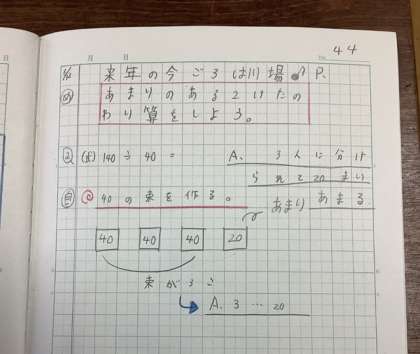 44
月 日
来年の今ごろは川場 P.
め あまりのある2けたの
わり算をしよう。
(式) 140 ÷ 40 = A. 3人に分け
られて20まい
あまる
自 ◎ 40の束を作る。
あまり
40 40 40 20
束が3こ
A. 3 … 20